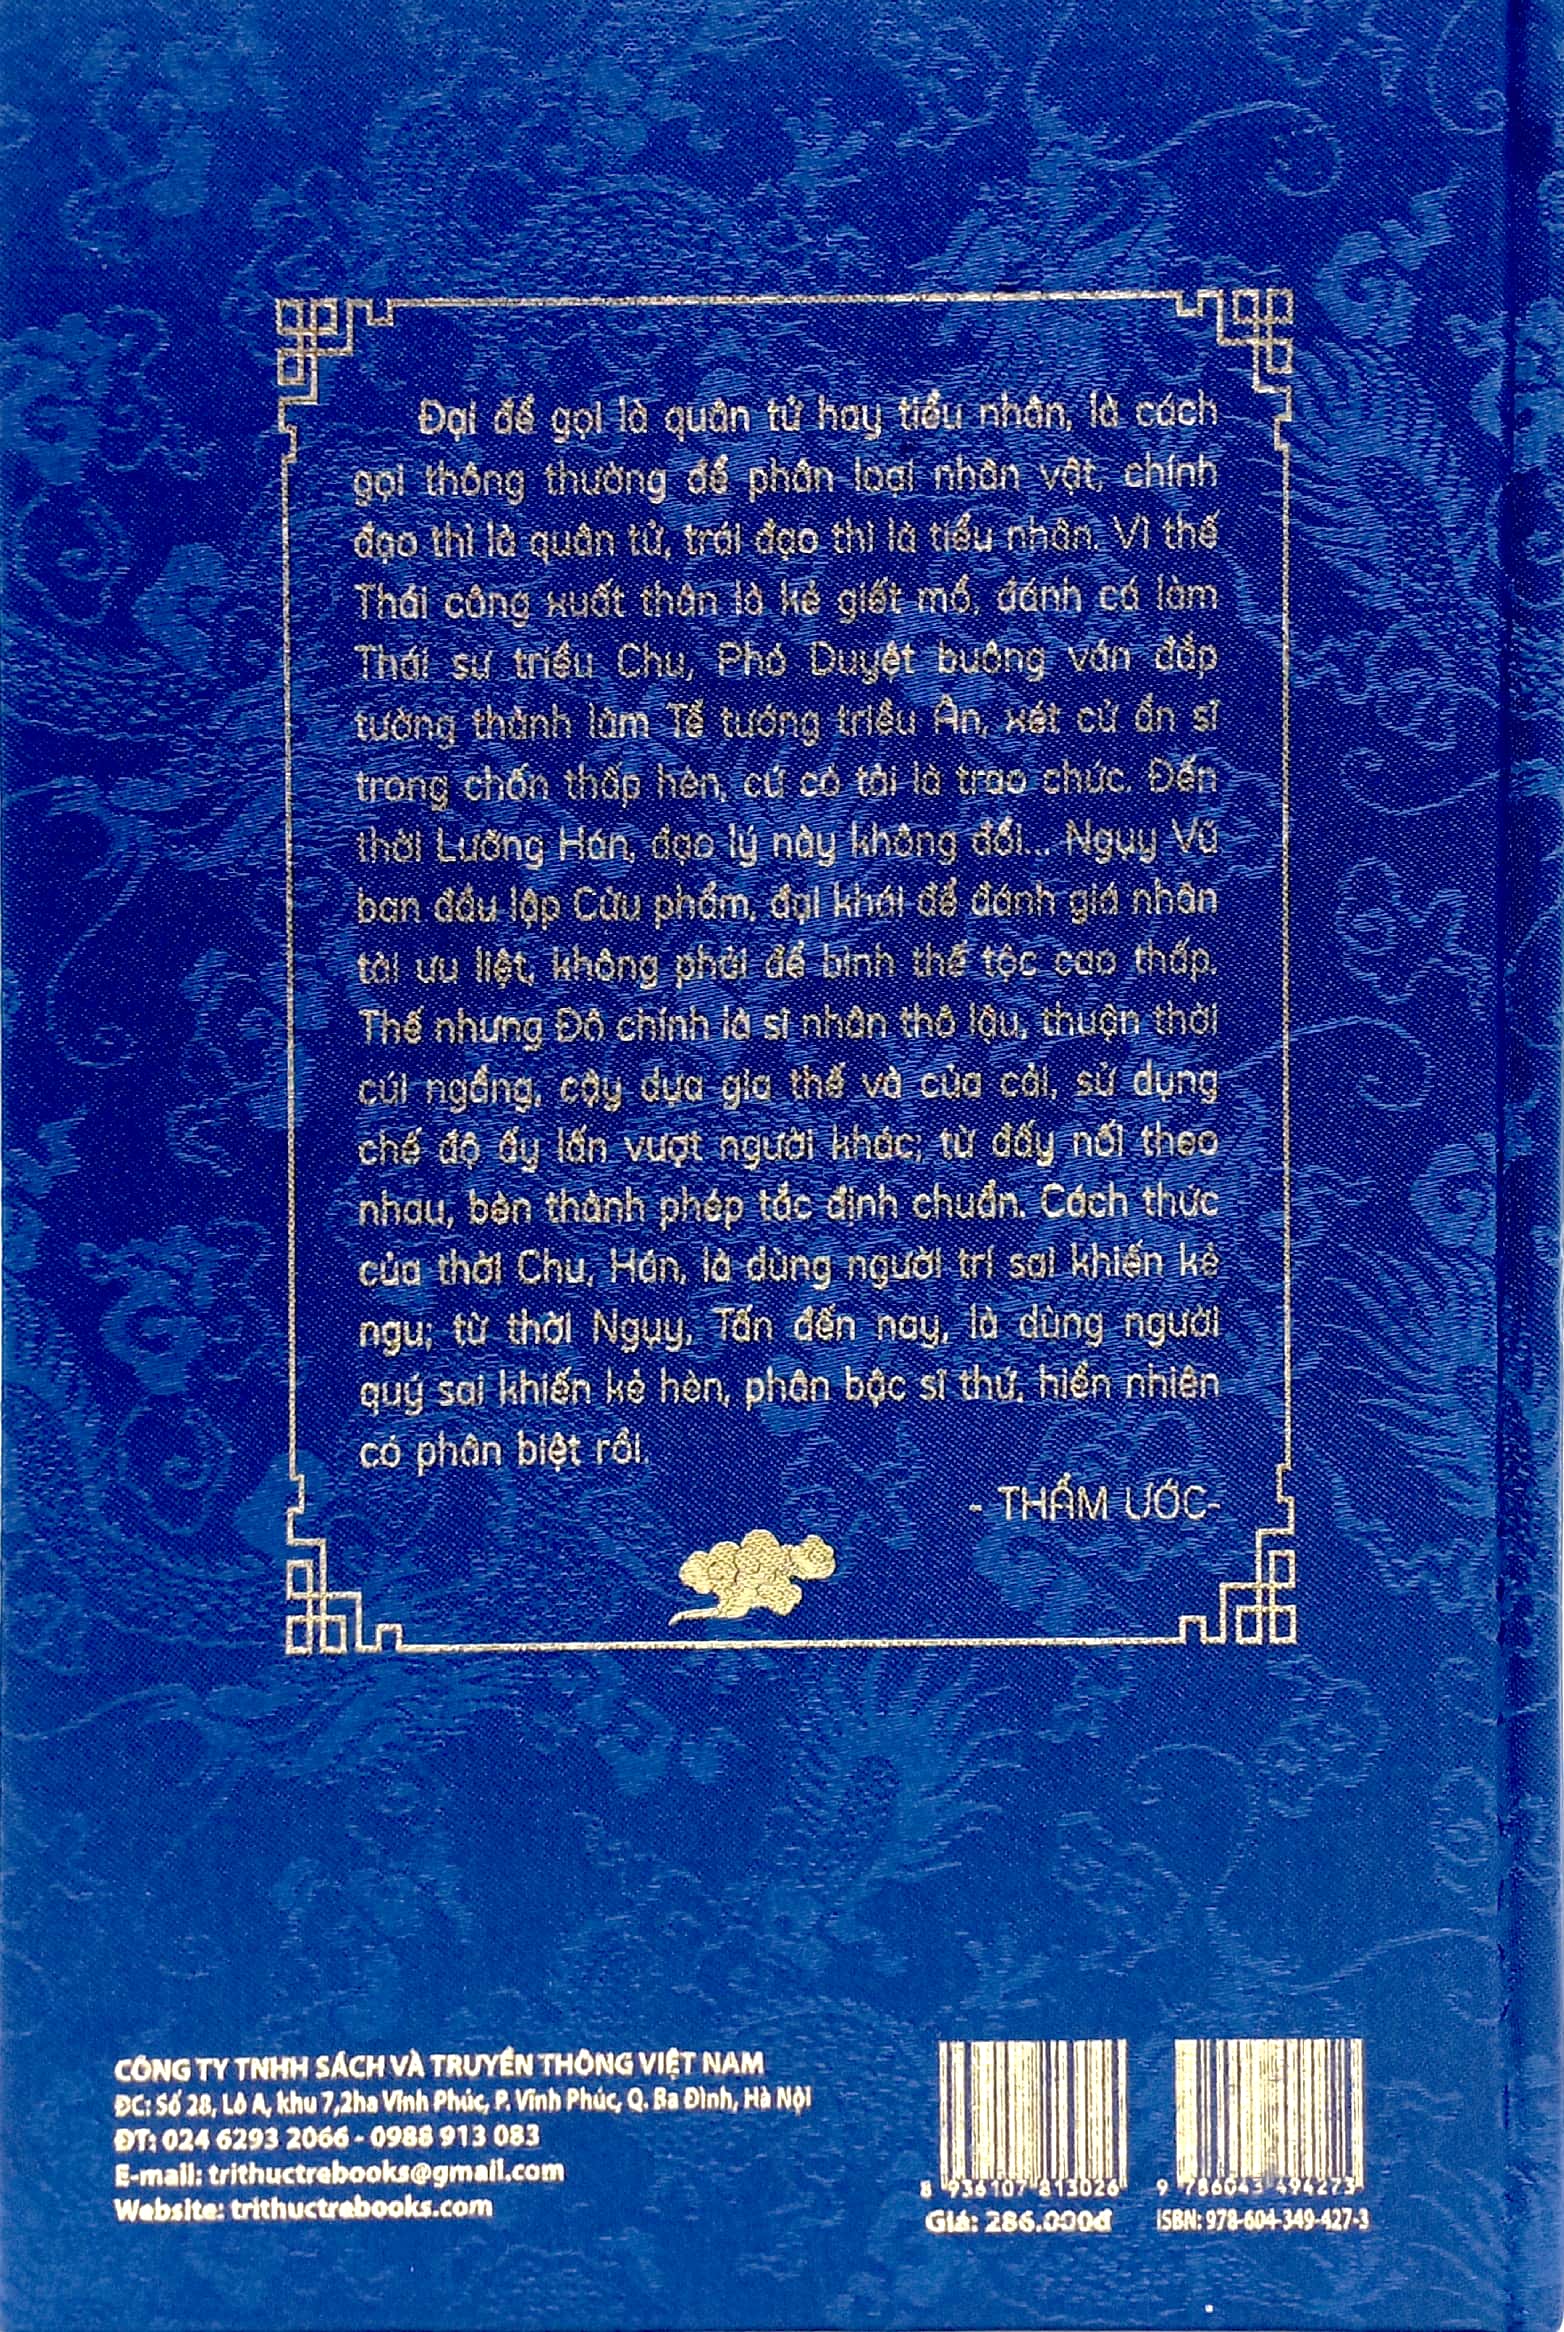 Đại để gọi là quân tử hay tiểu nhân, là cách
gọi thông thường để phân loại nhân vật, chính
đạo thì là quân tử, trái đạo thì là tiểu nhân. Vì thế
Thái công xuất thân là kẻ giết mổ, đánh cá làm
Thái sư triều Chu, Phó Duyệt buông ván đắp
tường thành làm Tể tướng triều Ân, xét cử ẩn sĩ
trong chốn thấp hèn, cứ có tài là trao chức. Đến
thời Lưỡng Hán, đạo lý này không đổi... Ngụy Vũ
ban đầu lập Cửu phẩm, đại khái để đánh giá nhân
tài ưu liệt, không phải để bình thế tộc cao thấp.
Thế nhưng Đô chính là sĩ nhân thô lậu, thuận thời
cúi ngẩng, cậy dựa gia thế và của cải, sử dụng
chế độ ấy lấn vượt người khác; từ đấy nối theo
nhau, bèn thành phép tắc định chuẩn. Cách thức
của thời Chu, Hán, là dùng người trí sai khiến kẻ
ngu; từ thời Ngụy, Tấn đến nay, là dùng người
quý sai khiến kẻ hèn, phân bậc sĩ thứ, hiển nhiên
có phân biệt rồi.
- THẨM ƯỚC-
CÔNG TY TNHH SÁCH VÀ TRUYỀN THÔNG VIỆT NAM
ĐC: Số 28, Lô A, khu 7,2ha Vĩnh Phúc, P. Vĩnh Phúc, Q. Ba Đình, Hà Nội
ĐT: 024 6293 2066 - 0988 913 083
E-mail: trithuctrebooks@gmail.com
Website: trithuctrebooks.com
8 936107 813026
Giá: 286.000đ
9 786043 494273
ISBN: 978-604-349-427-3